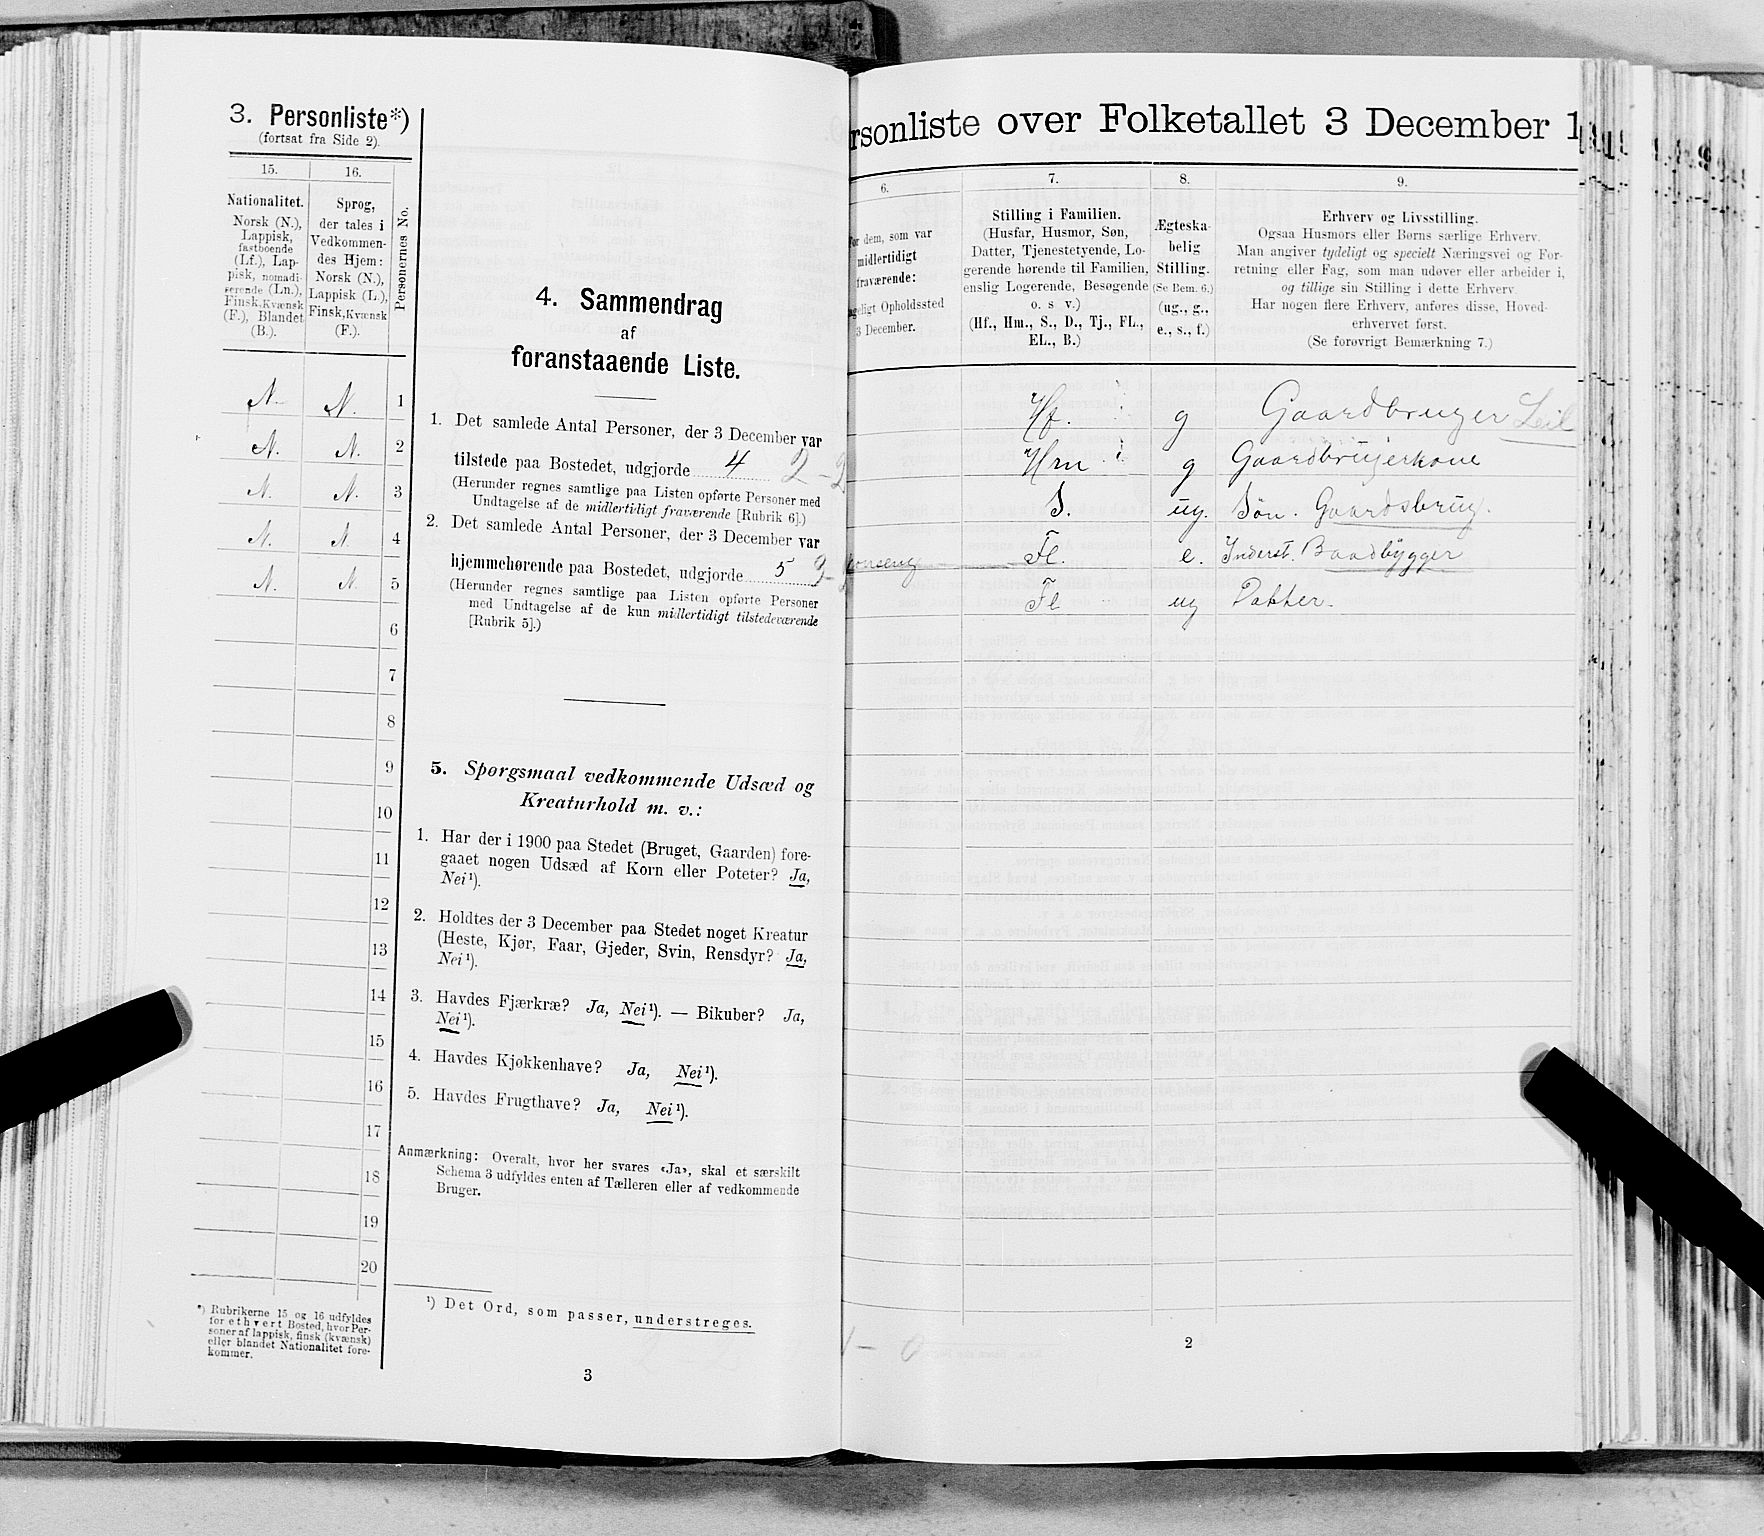 3. Personliste*)
(fortsat fra Side 2).
15.
16.
Personernes No.
Nationalitet.
Norsk (N.),
Lappisk,
fastboende
(Lf.), Lap-
pisk, nomadi-
serende (Ln.),
Finsk, Kvænsk
(F.), Blandet
(B.).
Sprog,
der tales i
Vedkommen-
des Hjem:
Norsk (N.),
Lappisk (L.),
Finsk, Kvænsk
(F.).
N. N. 1
N. N. 2
N. N. 3
N. N. 4
N. N. 5
6
7
8
9
10
11
12
13
14
15
16
17
18
19
20
*) Rubrikerne 15 og 16 udfyldes
for ethvert Bosted, hvor Per-
soner af lappisk, finsk (kvænsk)
eller blandet Nationalitet fore-
kommer.
4. Sammendrag
af
foranstaaende Liste.
1. Det samlede Antal Personer, der 3 December var
tilstede paa Bostedet, udgjorde 4 2 - 2
(Herunder regnes samtlige paa Listen opførte Personer med
Undtagelse af de midlertidigt fraværende [Rubrik 6].)
2. Det samlede Antal Personer, der 3 December var
hjemmehørende paa Bostedet, udgjorde 5 3 -
(Herunder regnes samtlige paa Listen opførte Personer
med Undtagelse af de kun midlertidigt tilstedeværende
[Rubrik 5].)
5. Spørgsmaal vedkommende Udsæd og
Kreaturhold m. v.:
1. Har der i 1900 paa Stedet (Bruget, Gaarden) fore-
gaaet nogen Udsæd af Korn eller Poteter? Ja,
Nei¹).
2. Holdtes der 3 December paa Stedet noget Kreatur
(Heste, Kjør, Faar, Gjeder, Svin, Rensdyr? Ja,
Nei¹).
3. Havdes Fjærkræ? Ja, Nei¹). — Bikuber? Ja,
Nei¹).
4. Havdes Kjøkkenhave? Ja, Nei¹).
5. Havdes Frugthave? Ja, Nei¹).
Anmærkning: Overalt, hvor her svares «Ja», skal et særskilt
Schema 3 udfyldes enten af Tælleren eller af vedkommende
Bruger.
¹) Det Ord, som passer, understreges.
3
rsonliste over Folketallet 3 December 1
6.
7.
8.
9.
For dem, som var
midlertidigt
fraværende:
ageligt Opholdssted
3 December.
Stilling i Familien.
(Husfar, Husmor, Søn,
Datter, Tjenestetyende, Lo-
gerende hørende til Familien,
enslig Logerende, Besøgende
o. s. v.)
(Hf., Hm., S., D., Tj., FL.,
EL., B.)
Ægteska-
belig
Stilling.
(Se Bem. 6.)
(ug., g.,
e., s., f.)
Erhverv og Livsstilling.
Ogsaa Husmors eller Børns særlige Erhverv.
Man angiver tydeligt og specielt Næringsvei og For-
retning eller Fag, som man udøver eller arbeider i,
og tillige sin Stilling i dette Erhverv.
Har nogen flere Erhverv, anføres disse, Hoved-
erhvervet først.
(Se forøvrigt Bemærkning 7.)
Hf. g Gaardbruger Leil
Hm g Gaardbrugerkone
S. ug. Søn. Gaardsbrug.
Fl. e. Inderst. Baadbygger
Fl ug Datter.
- 0
2